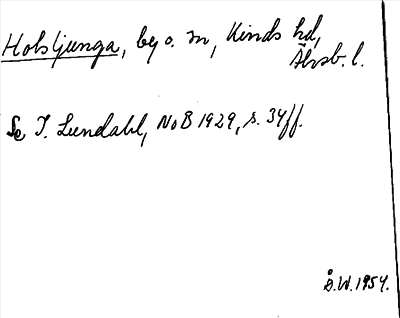 Holsljunga, by o. sn, Kinds hd,
Älvsb. l.
Se I. Lundahl, NoB 1929, s. 34 ff.
Å.W. 1954.